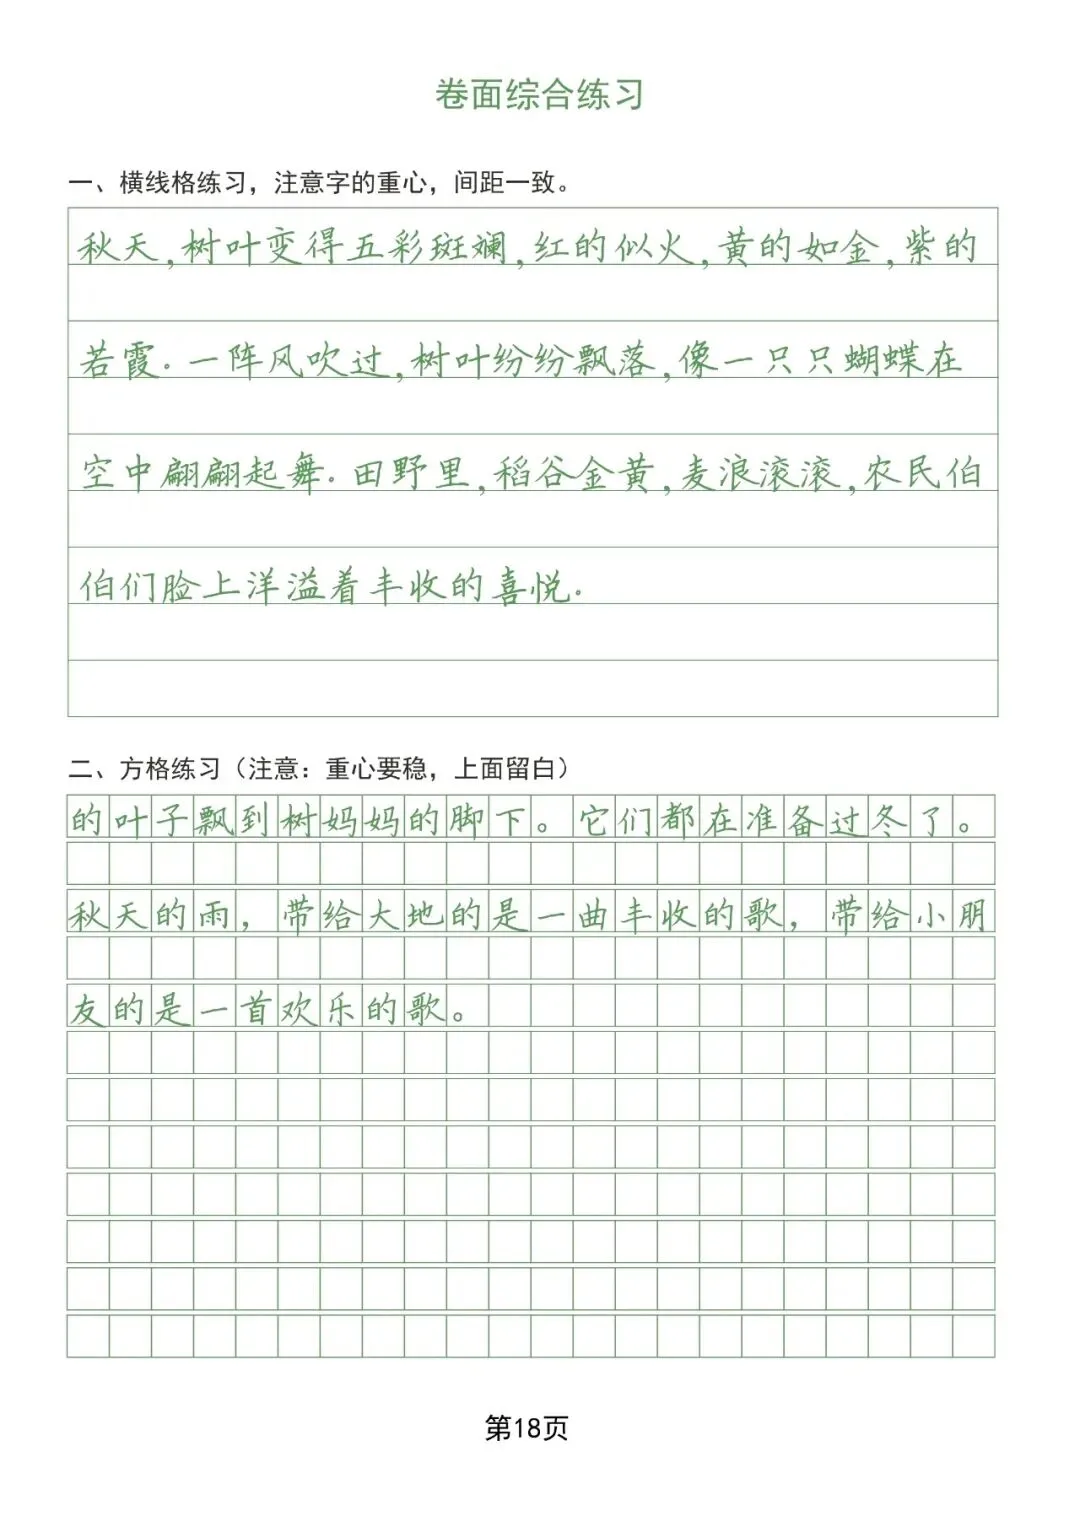 卷面综合练习
一、横线格练习，注意字的重心，间距一致。
秋天,树叶变得五彩斑斓,红的似火,黄的如金,紫的
若霞.一阵风吹过,树叶纷纷飘落,像一只只蝴蝶在
空中翩翩起舞.田野里,稻谷金黄,麦浪滚滚,农民伯
伯们脸上洋溢着丰收的喜悦.
二、方格练习（注意：重心要稳，上面留白）
的叶子飘到树妈妈的脚下。它们都在准备过冬了。
秋天的雨，带给大地的是一曲丰收的歌，带给小朋
友的是一首欢乐的歌。
第18页